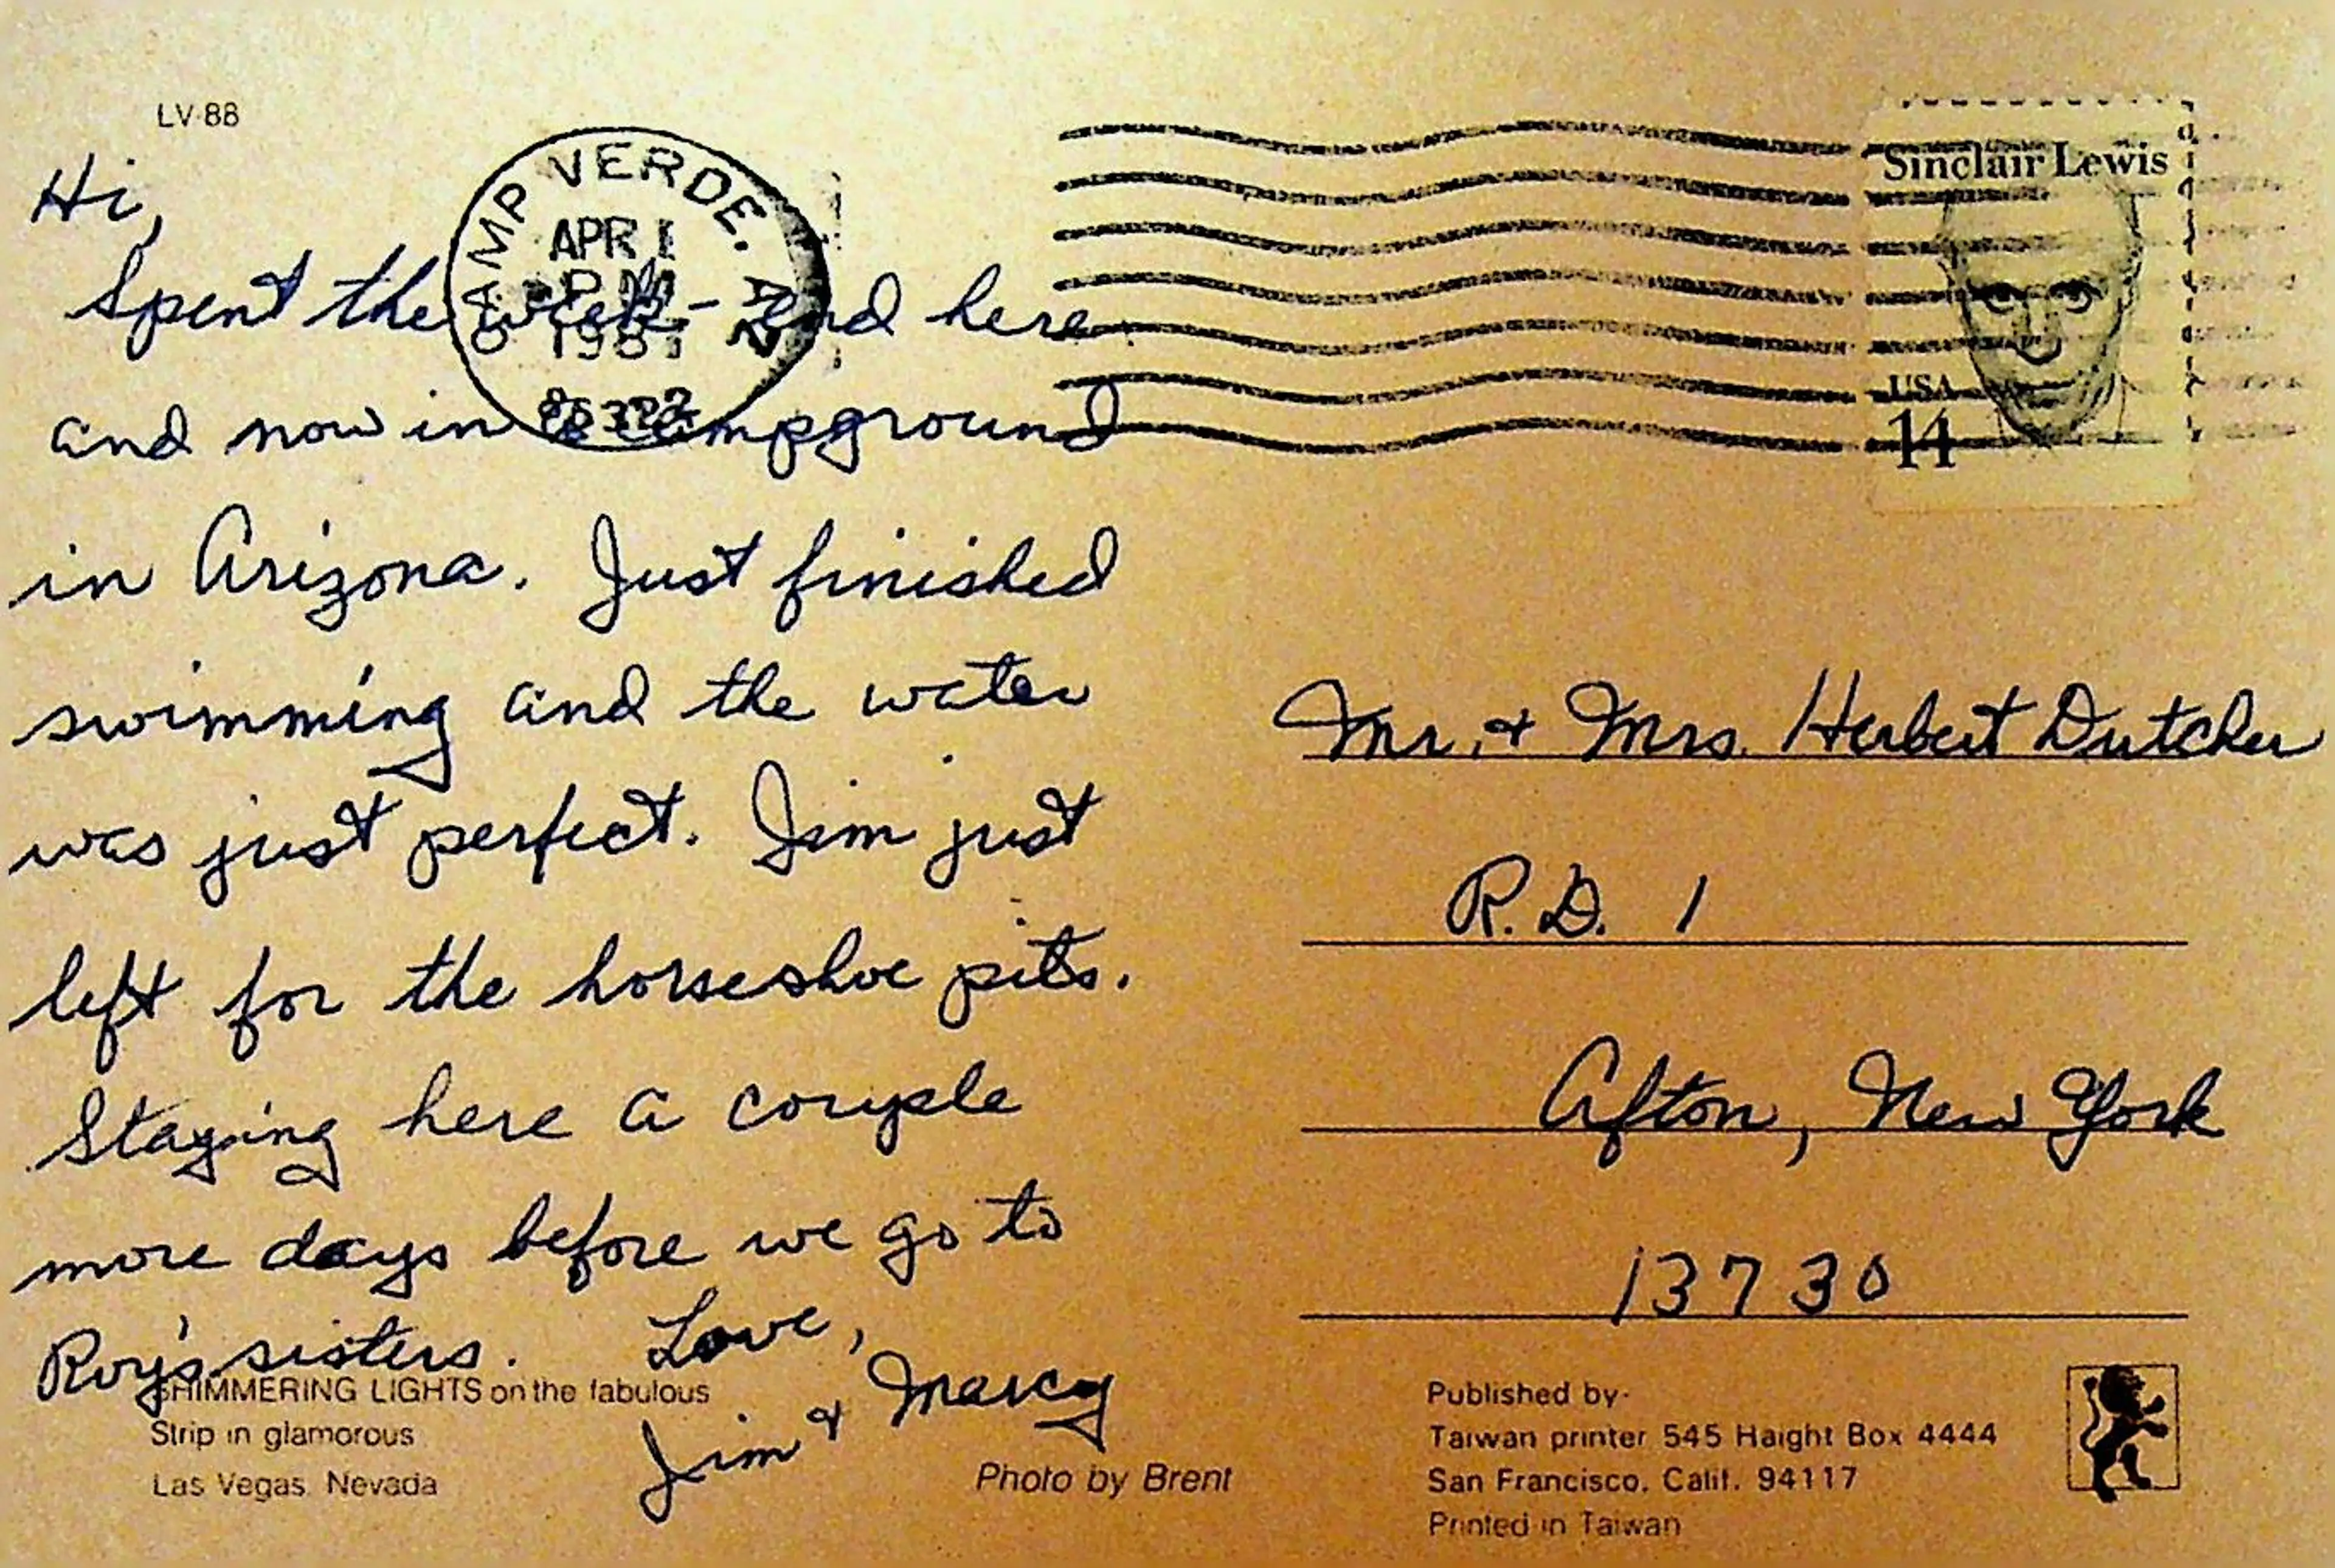 LV-88
Hi,
Spent the week-end here
and now in a campground
in Arizona. Just finished
swimming and the water
was just perfect. Jim just
left for the horseshoe pits.
Staying here a couple
more days before we go to
Roy's sisters. Love,
Jim & Marcy
SHIMMERING LIGHTS on the fabulous
Strip in glamorous
Las Vegas, Nevada
Photo by Brent
CAMP VERDE, AZ
APR 1
PM
86322
Sinclair Lewis
USA
14
Mr. & Mrs. Herbert Dutcher
R.D. 1
Afton, New York
13730
Published by-
Taiwan printer 545 Haight Box 4444
San Francisco, Calif. 94117
Printed in Taiwan